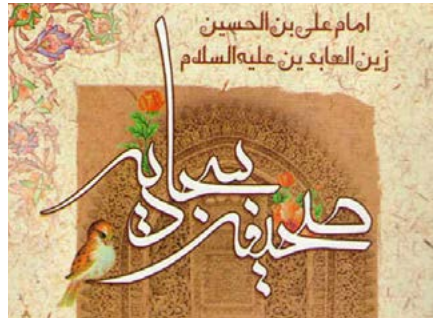 امام علی بن الحسین
زین العابدین علیه السلام
صحیفه سجادیه